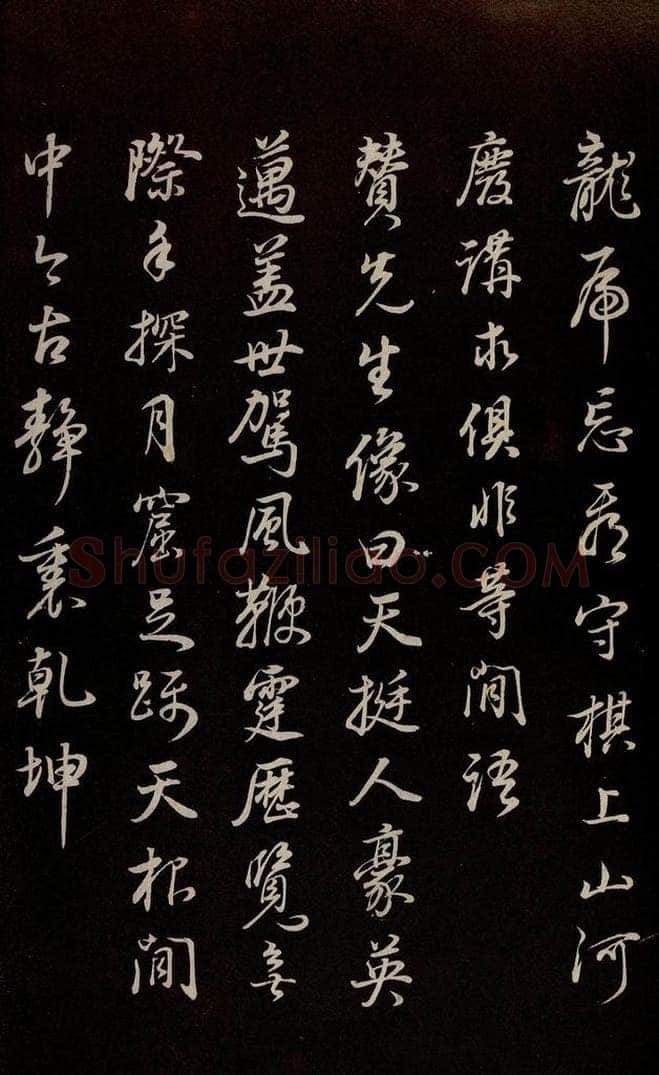 龍虎忘看守棋上山河
廢講求俱非等閒語
贊先生像曰天挺人豪英
邁盖世駕風鞭霆歷覽無
際手探月窟足躡天根閒
中今古靜裏乾坤
Shufaziliao.COM